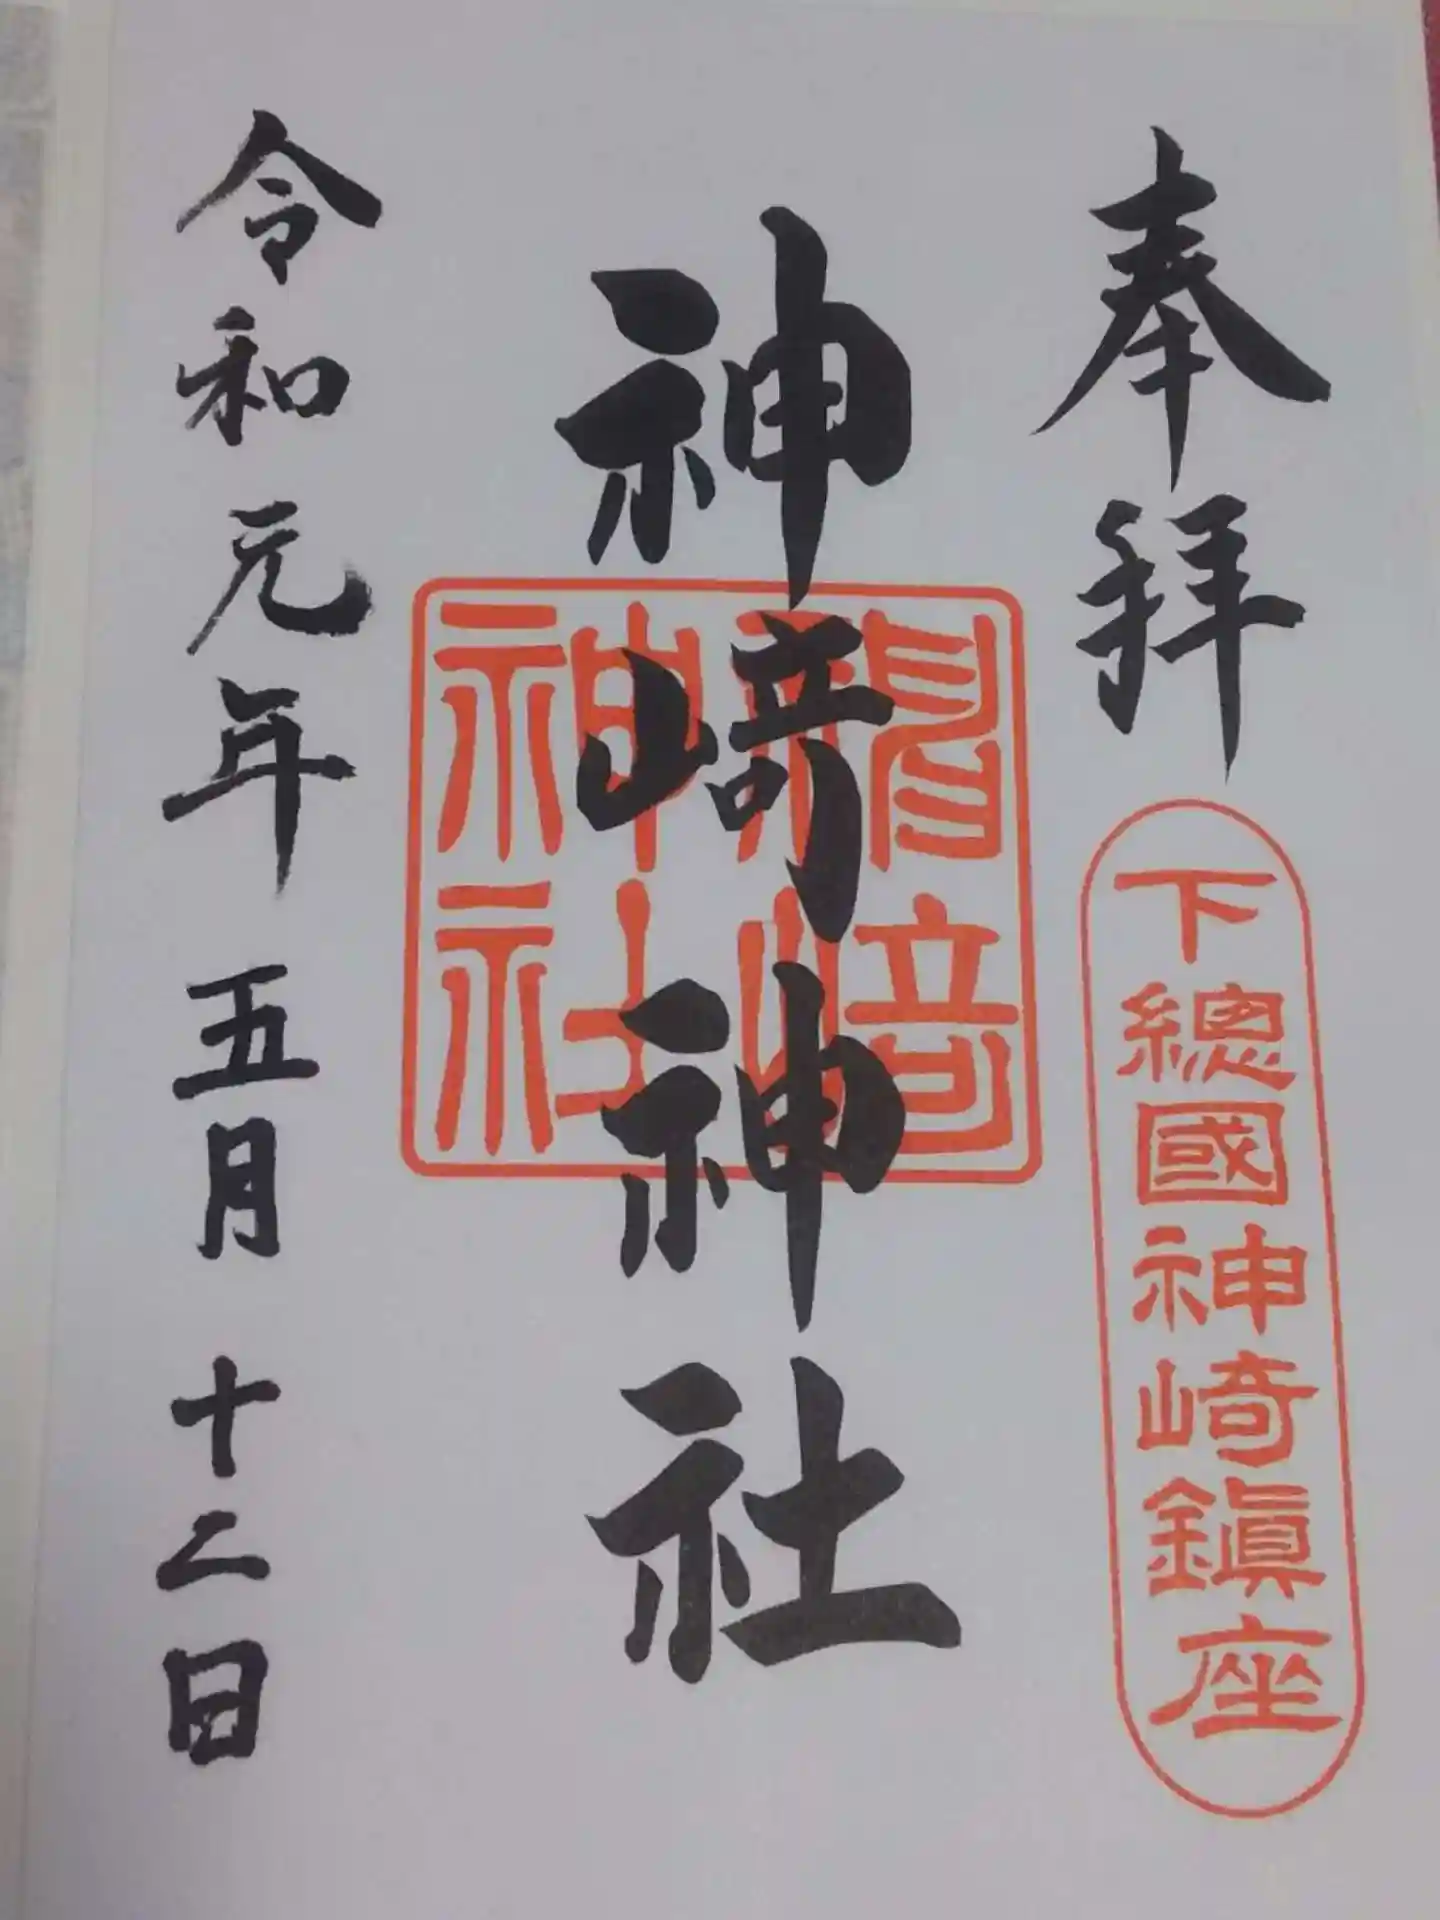 奉拜
下總國神崎鎮座
神崎神社
令和元年 五月 十二日